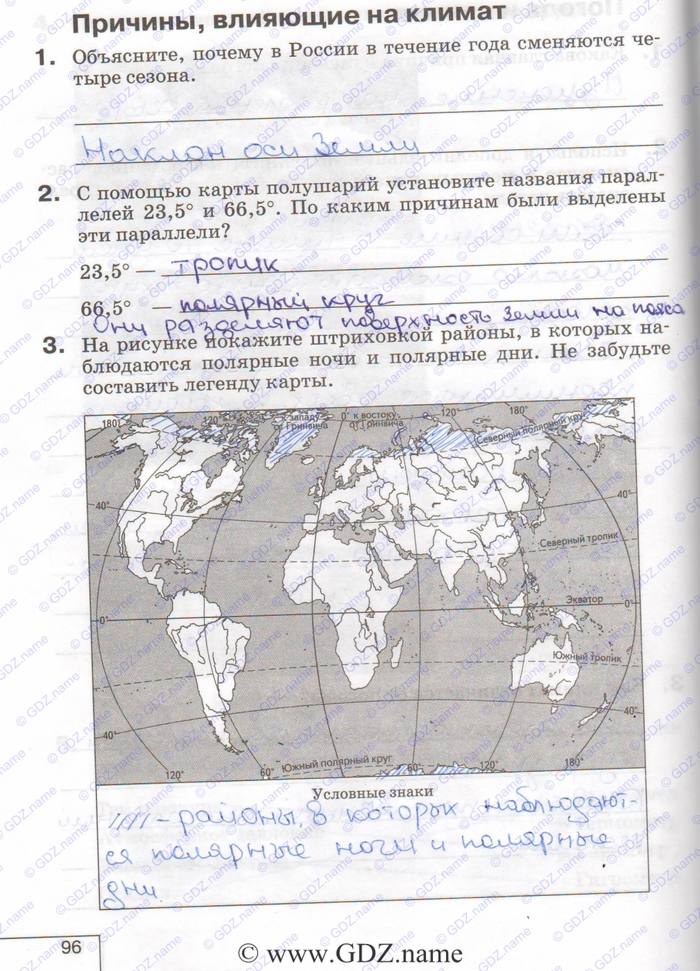 Причины, влияющие на климат
1. Объясните, почему в России в течение года сменяются че-
тыре сезона.
Наклон оси Земли
2. С помощью карты полушарий установите названия парал-
лелей 23,5° и 66,5°. По каким причинам были выделены
эти параллели?
23,5° — тропик
66,5° — полярный круг
Они разделяют поверхность Земли на пояса
3. На рисунке покажите штриховкой районы, в которых на-
блюдаются полярные ночи и полярные дни. Не забудьте
составить легенду карты.
180° 120° к западу от Гринвича 0° к востоку от Гринвича 120° 180°
Северный полярный круг
40° 40°
Северный тропик
Экватор
0° 0°
Южный тропик
40° 40°
Южный полярный круг
120° 60° 60° 120°
Условные знаки
- районы, в которых наблюдают-
ся полярные ночи и полярные
дни.
96
© www.GDZ.name